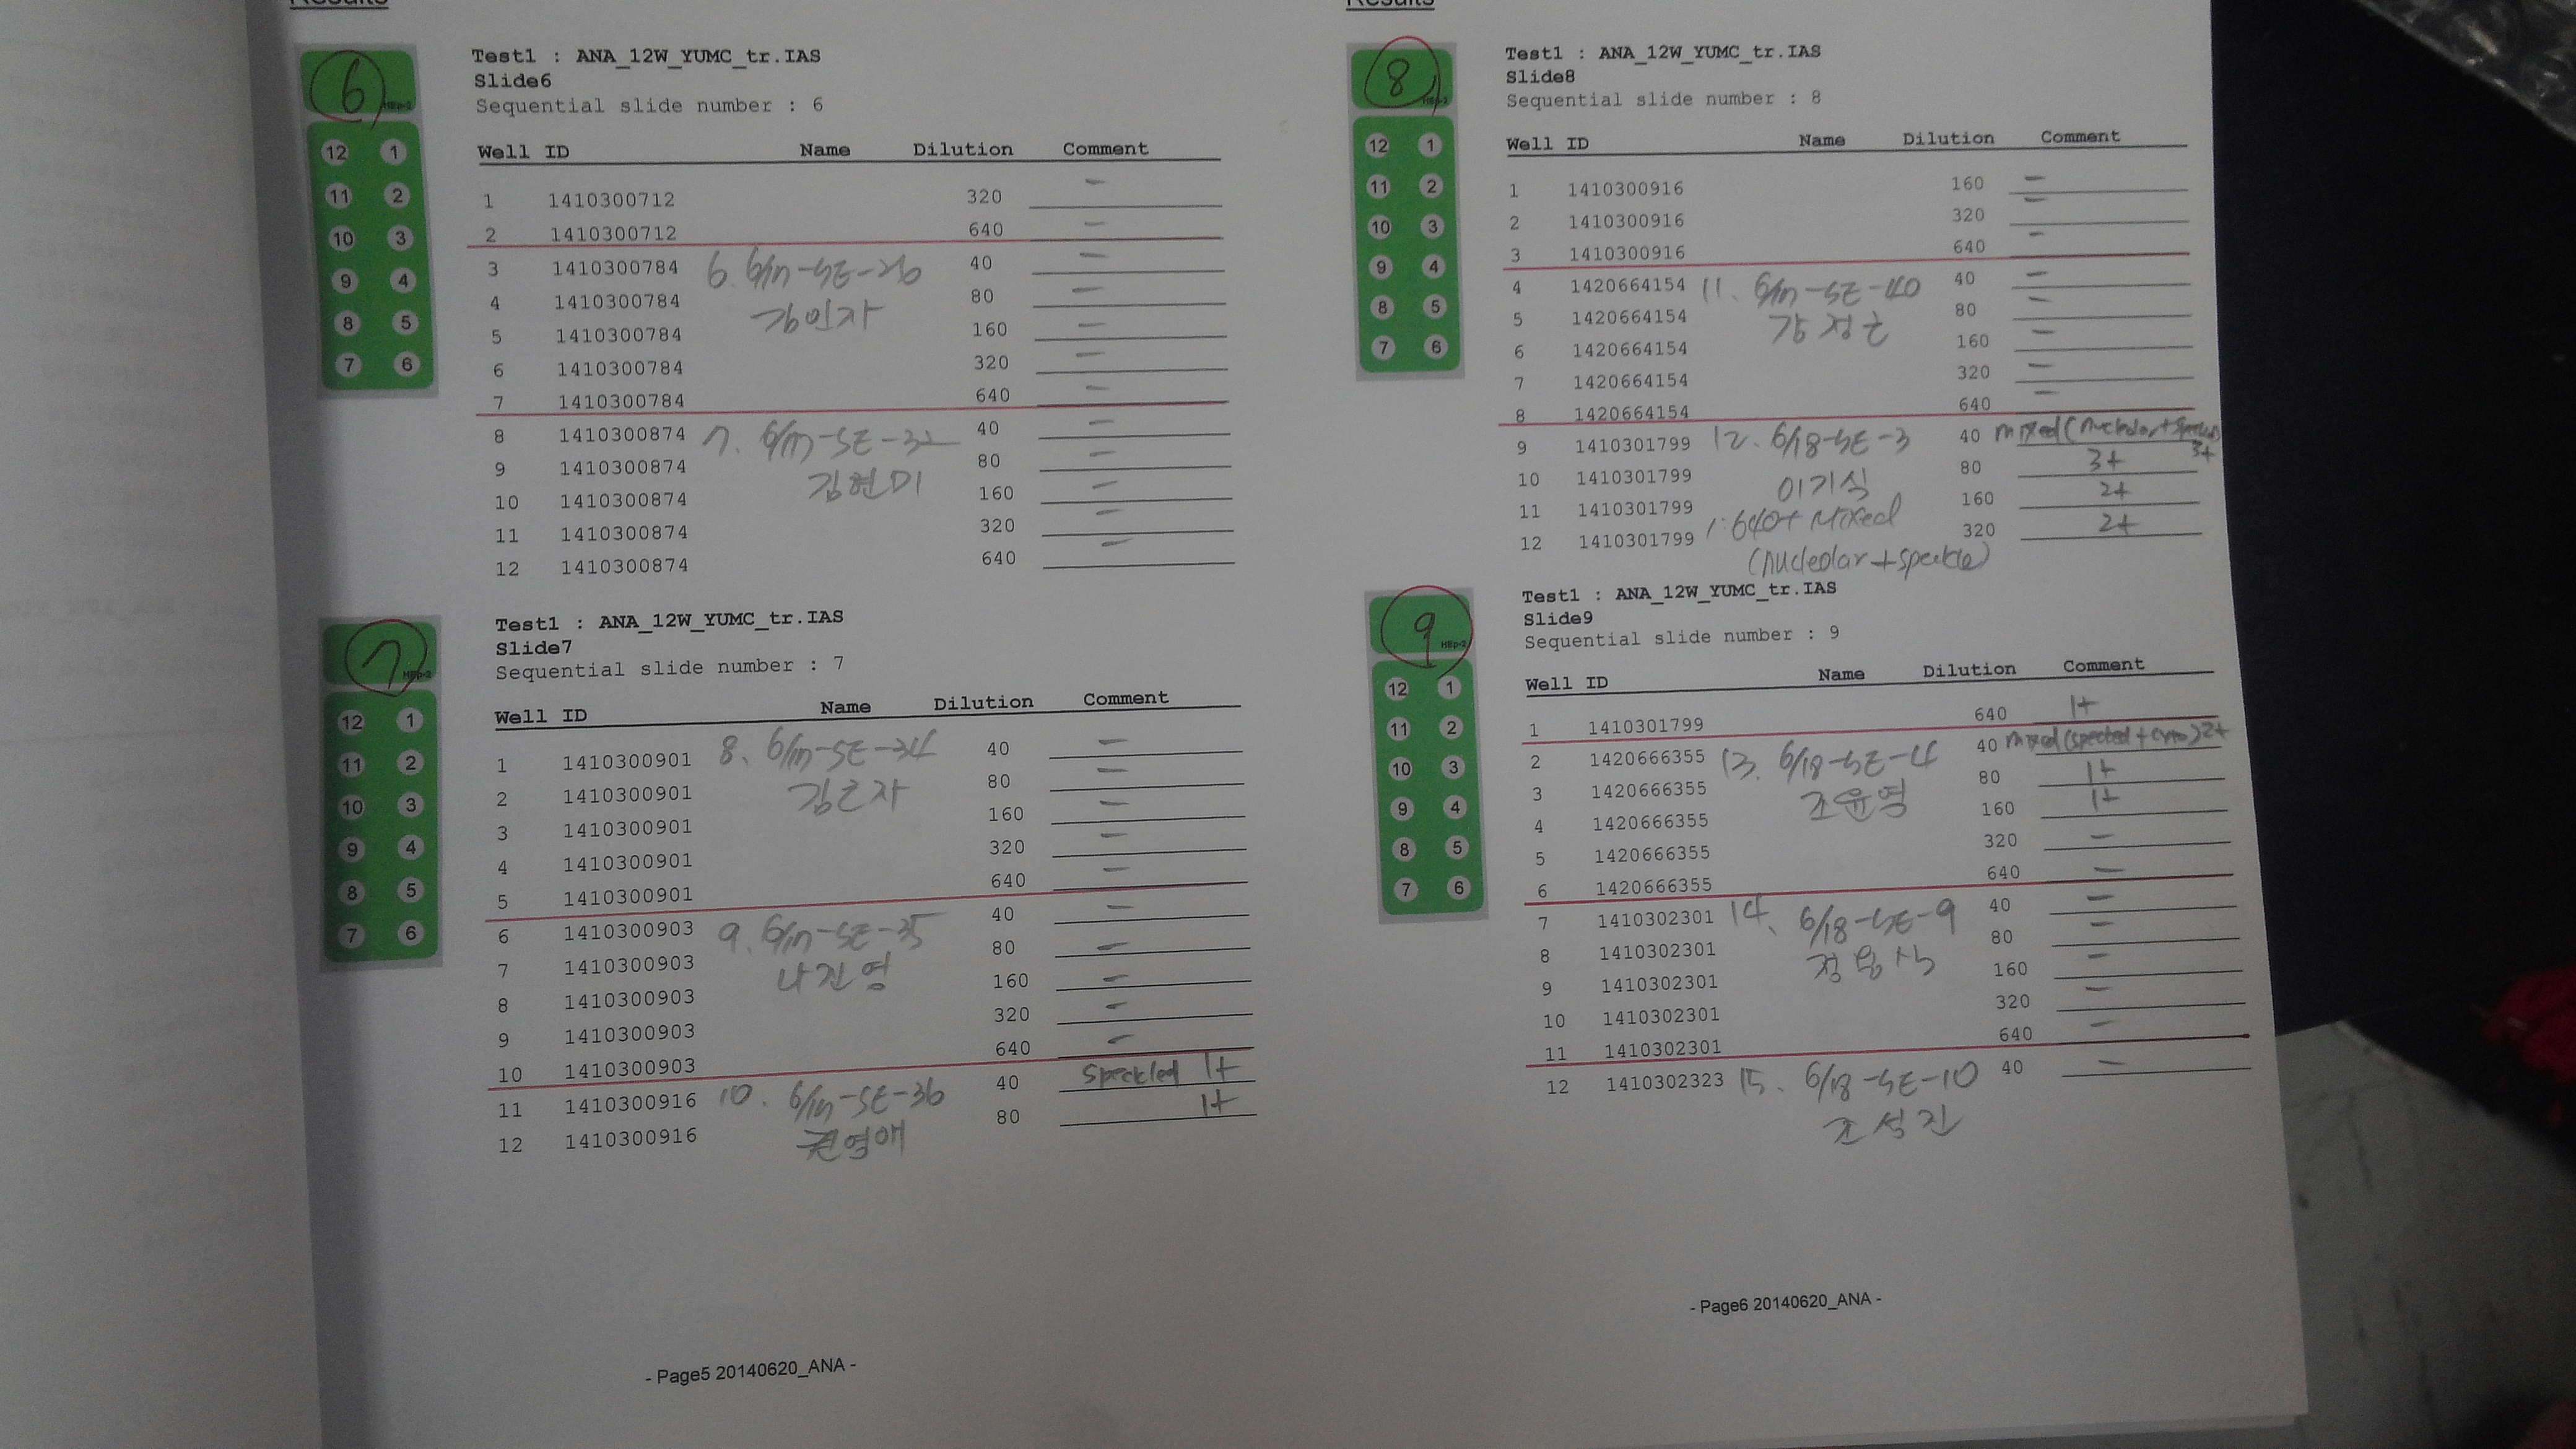 Results
6
HEp-2
12 1
11 2
10 3
9 4
8 5
7 6
Test1 : ANA_12W_YUMC_tr.IAS
Slide6
Sequential slide number : 6
Well ID Name Dilution Comment
1 1410300712 320 -
2 1410300712 640 -
3 1410300784 6. 6/17-SE-26 40 -
4 1410300784 80 -
김민자
5 1410300784 160 -
6 1410300784 320 -
7 1410300784 640 -
8 1410300874 7. 6/17-SE-32 40 -
9 1410300874 80 -
김현미
10 1410300874 160 -
11 1410300874 320 -
12 1410300874 640 -
7
HEp-2
12 1
11 2
10 3
9 4
8 5
7 6
Test1 : ANA_12W_YUMC_tr.IAS
Slide7
Sequential slide number : 7
Well ID Name Dilution Comment
1 1410300901 8. 6/17-SE-34 40 -
2 1410300901 80 -
3 1410300901 160 -
4 1410300901 320 -
5 1410300901 640 -
6 1410300903 9. 6/17-SE-35 40 -
7 1410300903 80 -
나진영
8 1410300903 160 -
9 1410300903 320 -
10 1410300903 640 -
11 1410300916 10. 6/17-SE-36 40 Speckled 1+
12 1410300916 80 1+
권영애
- Page5 20140620_ANA -
Results
8
HEp-2
12 1
11 2
10 3
9 4
8 5
7 6
Test1 : ANA_12W_YUMC_tr.IAS
Slide8
Sequential slide number : 8
Well ID Name Dilution Comment
1 1410300916 160 -
2 1410300916 320 -
3 1410300916 640 -
4 1420664154 11. 6/17-SE-40 40 -
5 1420664154 80 -
6 1420664154 160 -
7 1420664154 320 -
8 1420664154 640 -
9 1410301799 12. 6/18-SE-3 40 mixed (nucleolar + speckled) 3+
10 1410301799 80 3+
이기식
11 1410301799 160 2+
1:640+ Mixed
12 1410301799 320 2+
(nucleolar + speckle)
9
HEp-2
12 1
11 2
10 3
9 4
8 5
7 6
Test1 : ANA_12W_YUMC_tr.IAS
Slide9
Sequential slide number : 9
Well ID Name Dilution Comment
1 1410301799 640 1+
2 1420666355 13. 6/18-SE-4 40 mixed 2+
3 1420666355 80 1+
조윤영
4 1420666355 160 1+
5 1420666355 320 -
6 1420666355 640 -
7 1410302301 14. 6/18-SE-9 40 -
8 1410302301 80 -
9 1410302301 160 -
10 1410302301 320 -
11 1410302301 640 -
12 1410302323 15. 6/18-SE-10 40 -
조석진
- Page6 20140620_ANA -